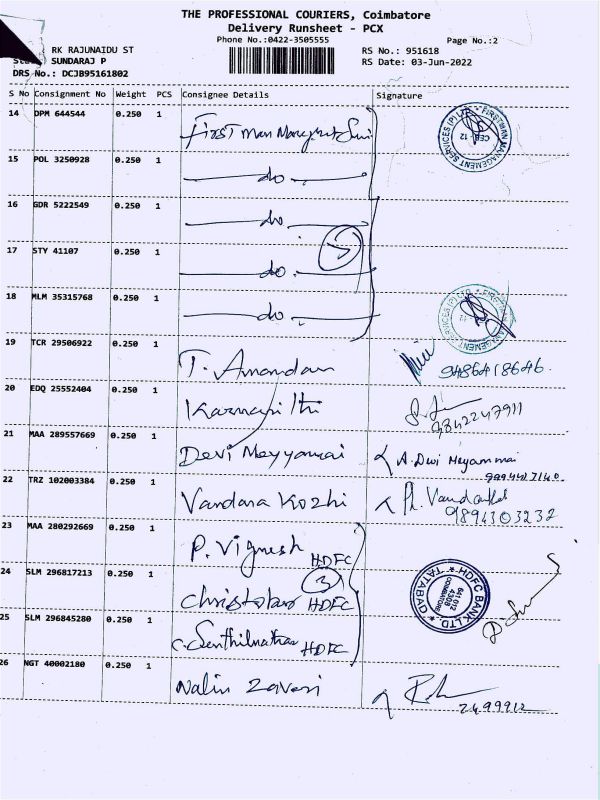 THE PROFESSIONAL COURIERS, Coimbatore
Delivery Runsheet - PCX
Phone No.:0422-3505555
Page No.:2
RK RAJUNAIDU ST
RS No.: 951618
SUNDARAJ P
RS Date: 03-Jun-2022
DRS No.: DCJB95161802
S No Consignment No Weight PCS Consignee Details Signature
14 DPM 644544 0.250 1 First Man
15 POL 3250928 0.250 1 do
16 GDR 5222549 0.250 1 do
5
17 STY 41107 0.250 1 do
18 MLM 35315768 0.250 1 do
19 TCR 29506922 0.250 1 T. Anandan 9486418646.
20 EDQ 25552404 0.250 1 9842247911
21 MAA 289557669 0.250 1 Devi Meyyamai A. Devi Meyammai
22 TRZ 102003384 0.250 1 Vandana Kozhi 9894303232
23 MAA 280292669 0.250 1 P. Vignesh HDFC
3
24 SLM 296817213 0.250 1 HDFC
HDFC BANK LTD.
TATABAD
COIMBATORE
25 SLM 296845280 0.250 1 C. Senthilnathan HDFC
26 NGT 40002180 0.250 1 Nalin Zaveri 2499912